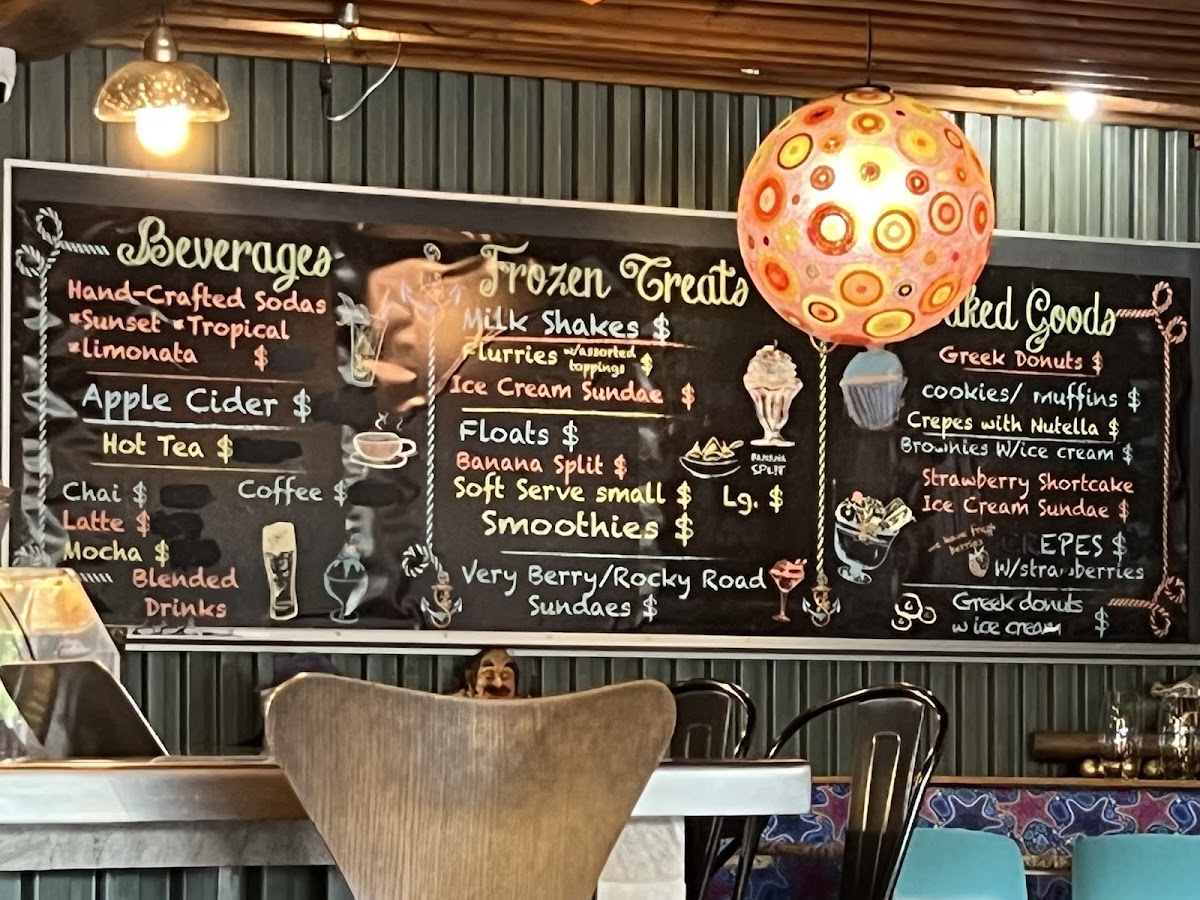 Beverages
Hand-Crafted Sodas
*Sunset *Tropical
*limonata $
Apple Cider $
Hot Tea $
Chai $ Coffee $
Latte $
Mocha $
Blended
Drinks
Frozen Treats
Milk Shakes $
Flurries w/assorted
toppings $
Ice Cream Sundae $
Floats $
Banana Split $
BANANA
SPLIT
Soft Serve small $ Lg. $
Smoothies $
Very Berry/Rocky Road
Sundaes $
Goods
Greek Donuts $
cookies/ muffins $
Crepes with Nutella $
Brownies W/ice cream $
Strawberry Shortcake
Ice Cream Sundae $
CREPES $
W/strawberries
Greek donuts
w ice cream $